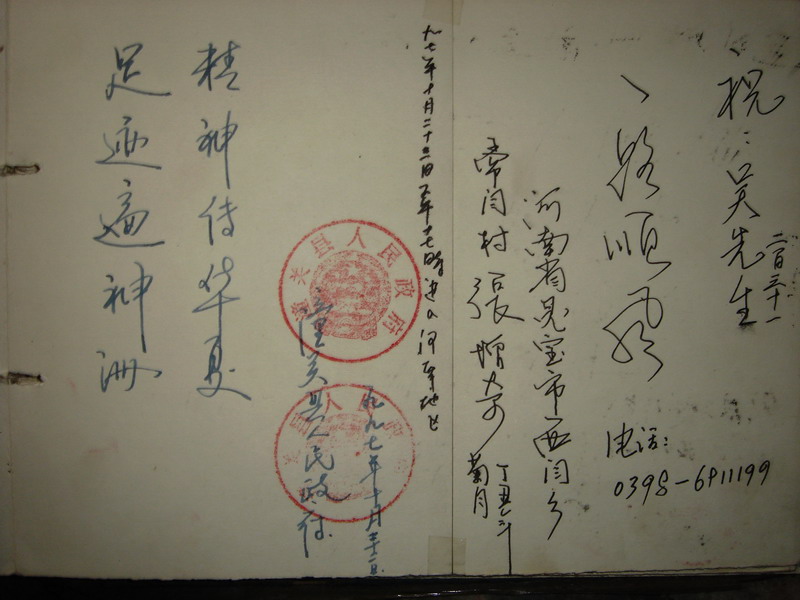 祝:吴先生
二百三十一
一路顺风
电话:
0398-6911199
河南省灵宝市西闫乡
常闫村 张增
丁丑
菊月
九七年十月二十三日下午十七时进入河南地区
潼关县人民政府
潼关县人民政府
一九九七年十月二十二日
县人民
精神传华夏
足迹遍神洲